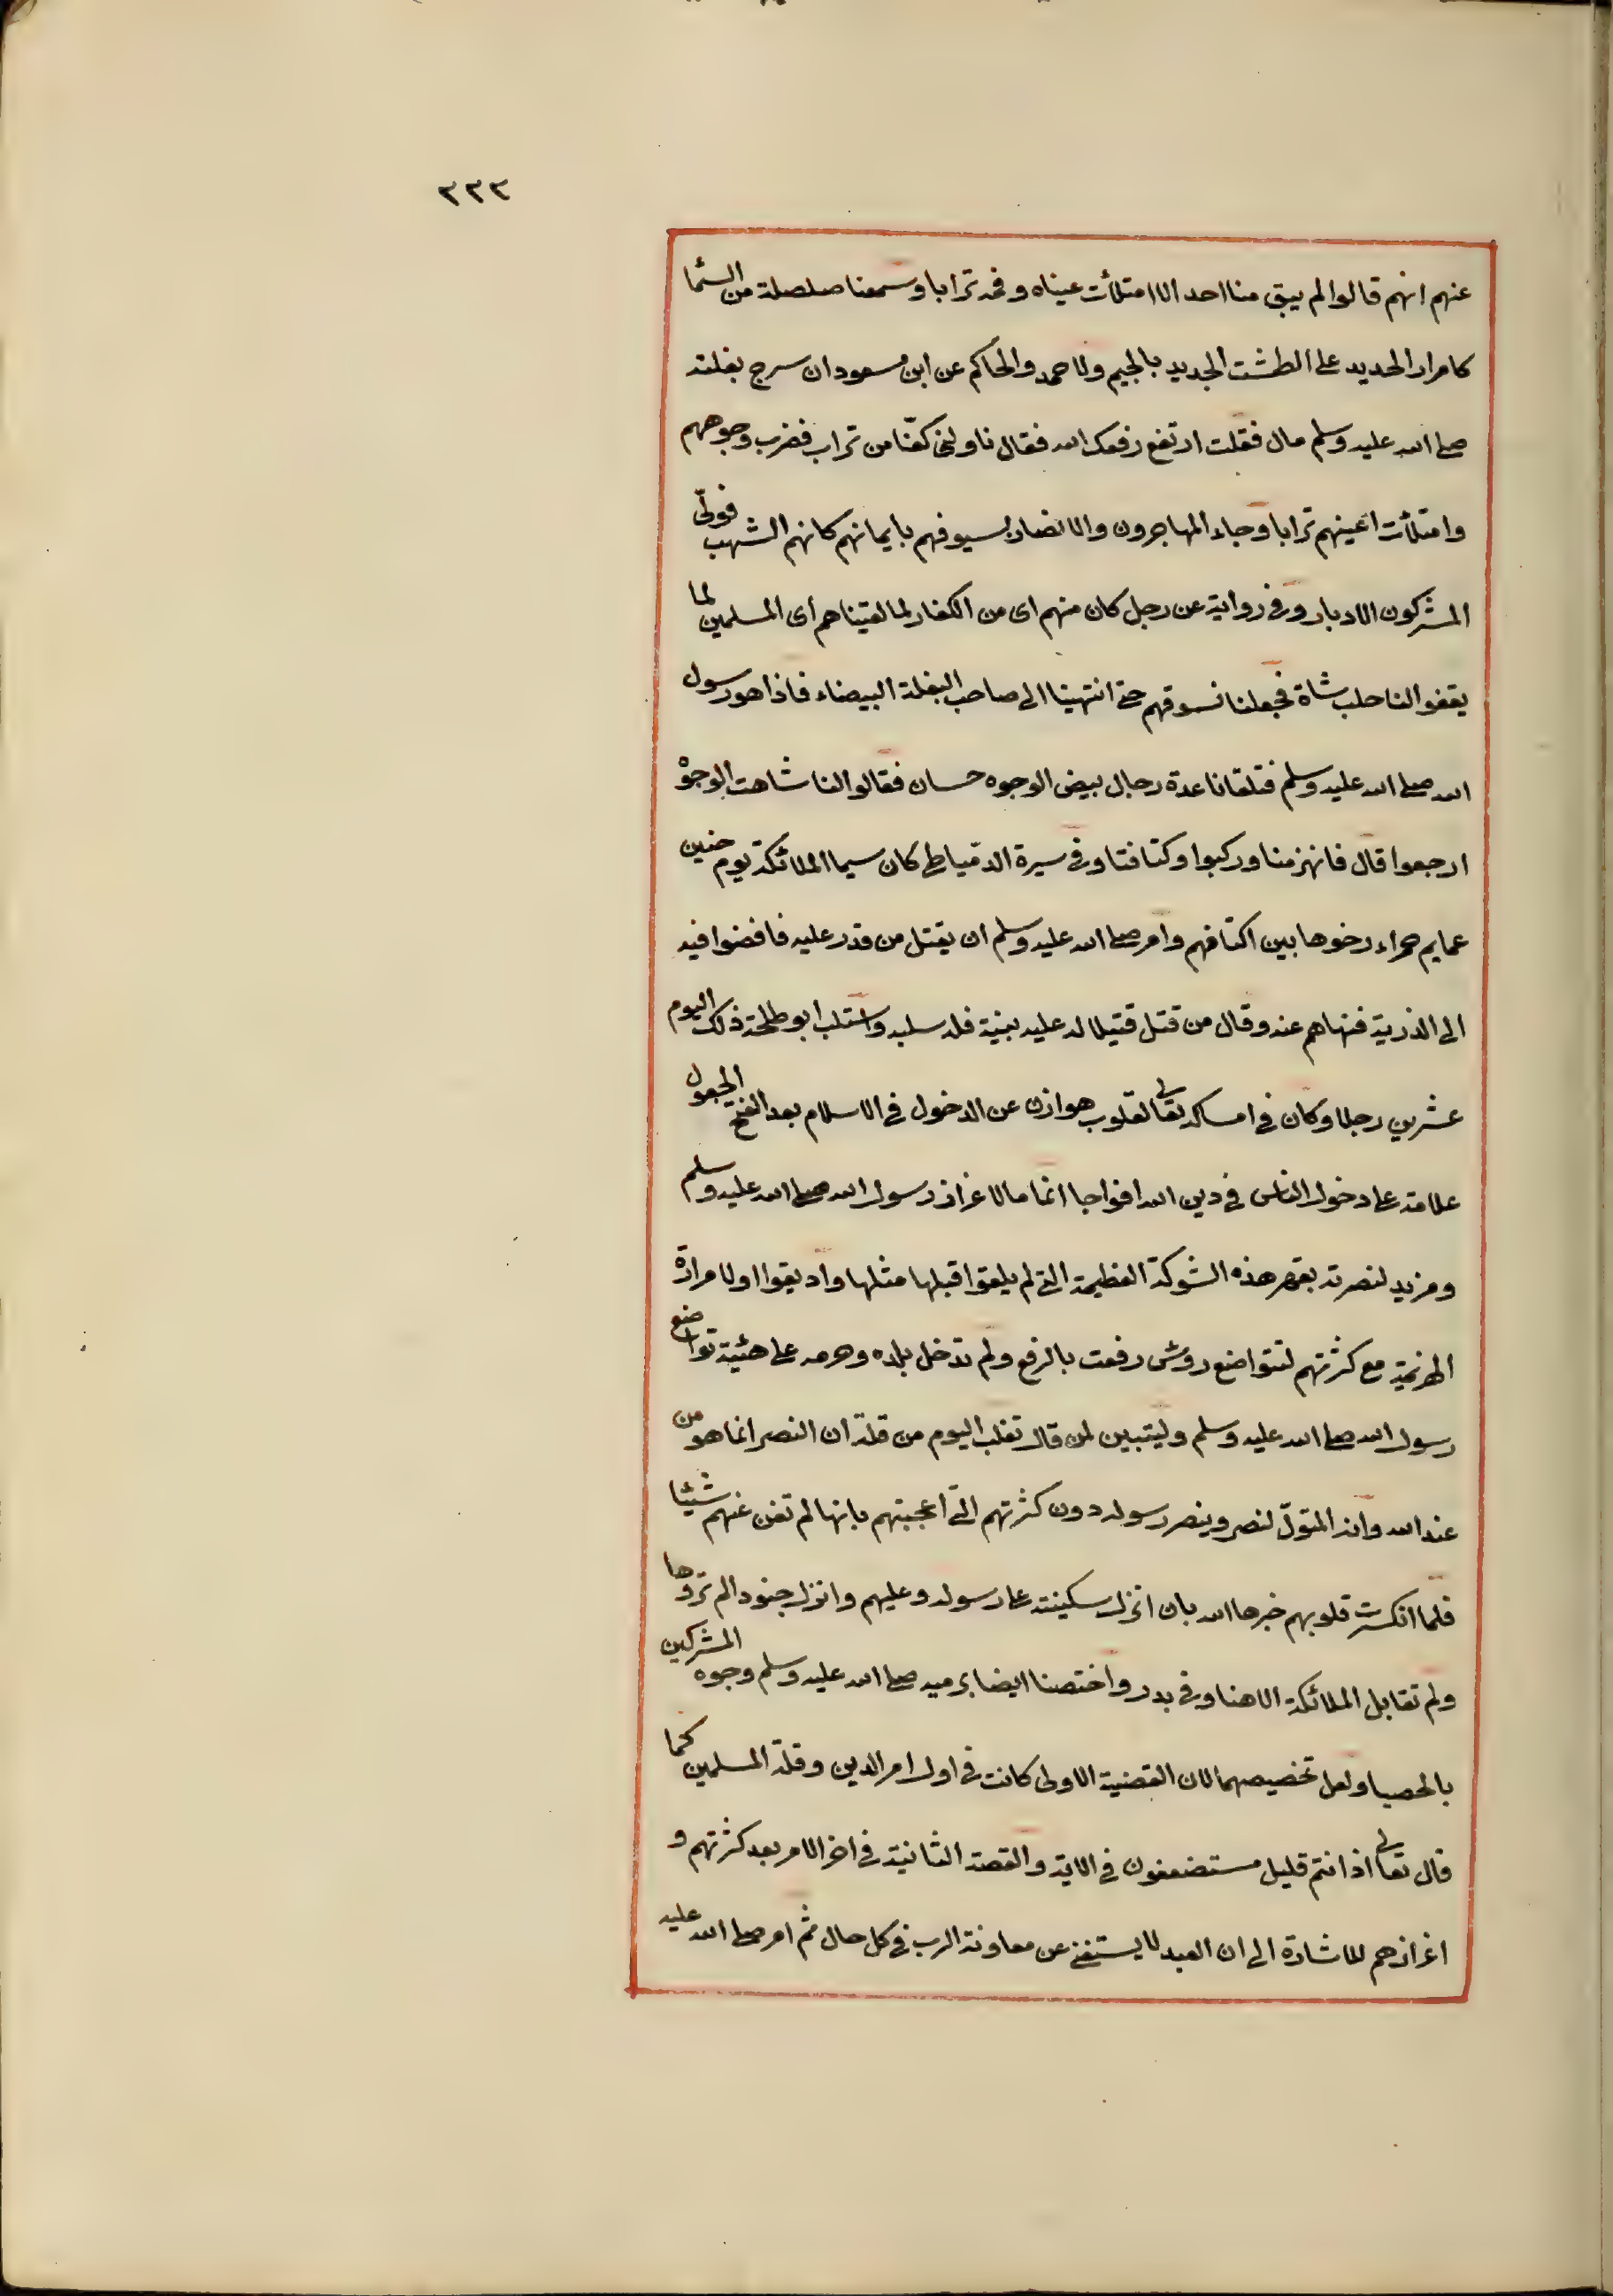 ٢٢٢
عنهم انهم قالوا لم يبق منا احد الا امتلأت عيناه وفمه ترابا وسمعنا صلصلة من السما
كامرار الحديد على الطشت الجديد بالجيم ولاحمد والحاكم عن ابن مسعود ان سرج بغلته
صلى الله عليه وسلم مال فقلت ارتفع رفعك الله فقال ناولنى كفّا من تراب فضرب وجوههم
وامتلأت اعينهم ترابا وجاء المهاجرون والانصار بسيوفهم بايمانهم كانهم الشهب فولّى
المشركون الادبار وفى رواية عن رجل كان منهم اى من الكفار لما لقيناهم أى المسلمين لما
يقفوا لنا حلب شاة فجعلنا نسوقهم حتى انتهينا الى صاحب البغلة البيضاء فاذا هو رسول
الله صلى الله عليه وسلم فتلقانا عدة رجال بيض الوجوه حسان فقالوا لنا شاهت الوجوْ
ارجعوا قال فانهزمنا وركبوا وكتافنا وفى سيرة الدمياطى كان سيما الملائكة يوم حنين
عمايم حمراء رخوها بين اكتافهم وامر صلى الله عليه وسلم ان يقتل من قدر عليه فافضوا فيه
الى الذرية فنهاهم عنه وقال من قتل قتيلا له عليه بينية فله سلبه واستلب ابو طلحة ذلك اليوم
عشرين رجلا وكان فى امساكه تعالى لقلوب هوازن عن الدخول فى الاسلام بعد الفتح المجعول
علامة على دخول الناس فى دين الله افواجا اتماما لاعزاز رسول الله صلى الله عليه وسلم
ومزيد لنصرته بقهر هذه الشوكة العظيمة التى لم يلقوا قبلها مثلها واذيقوا اولا مرارة
الهزيمة مع كثرتهم لتتواضع روس رفعت بالرفع ولم تدخل بلده وحرمه على هيئة تواضع
رسول الله صلى الله عليه وسلم وليتبين لمن قال نغلب اليوم من قلة ان النصر انما هو من
عند الله وانه المتولّ لنصر وينصر رسوله دون كثرتهم التى اعجبتهم بانها لم تغن عنهم شيئا
فلما انكسرت قلوبهم جبرها الله بان انزل سكينته على رسوله وعليهم وانزل جنودا لم تروها
ولم تقابل الملائكة الا هنا وفى بدر واختصنا ايضا برميه صلى الله عليه وسلم وجوه المشركين
بالحصبا ولعل تخصيصهما لان القضية الاولى كانت فى اول امر الدين وقلة المسلمين كما
قال تعالى اذ انتم قليل مستضعفون فى الاية والقصة الثانية فى اخر الامر بعد كثرتهم و
اعزازهم للاشارة الى ان العبد لا يستغنى عن معاونة الرب فى كل حال ثم امر صلى الله عليه